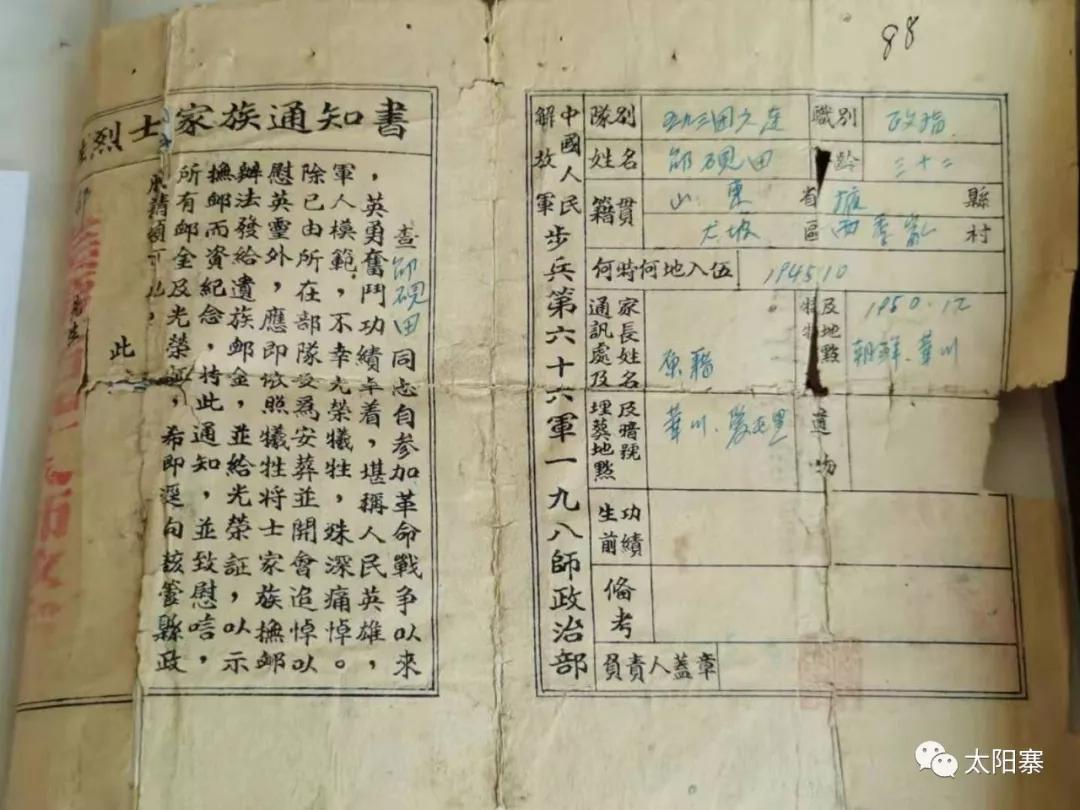 88
中國人民解放軍步兵第六十六軍一九八師政治部
隊別 五九三团六连 職別 政指
姓名 邹硯田 齡 二十二
籍貫 山東省掖縣
大坡區西季家村
何時何地入伍 1945.10
家長姓名及通訊處 原籍
及地點 1950.12 朝鮮、華川
埋葬地點及暗號 華川
遺物
生前功績
備考
負責人蓋章
烈士家族通知書
查邹硯田同志自參加革命戰爭以來
，英勇奮鬥功績卓着，堪稱人民英雄，
軍人模範，不幸光榮犧牲，殊深痛悼。
除已由所在部隊妥為安葬並開會追悼以
慰英靈外，應即依照犧牲將士家族撫邮
辦法發給遺族邮金，並給光榮証，以示
撫邮而資紀念，特此通知，並致慰唁，
所有邮金及光榮証，希即逕向該管縣政
此
太阳寨